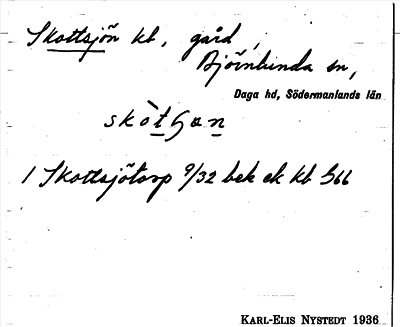 Skottsjön kb, gård,
Björnlunda sn,
Daga hd, Södermanlands län
1 Skottsjötorp 9/32 bek ek kb 566
KARL-ELIS NYSTEDT 1936